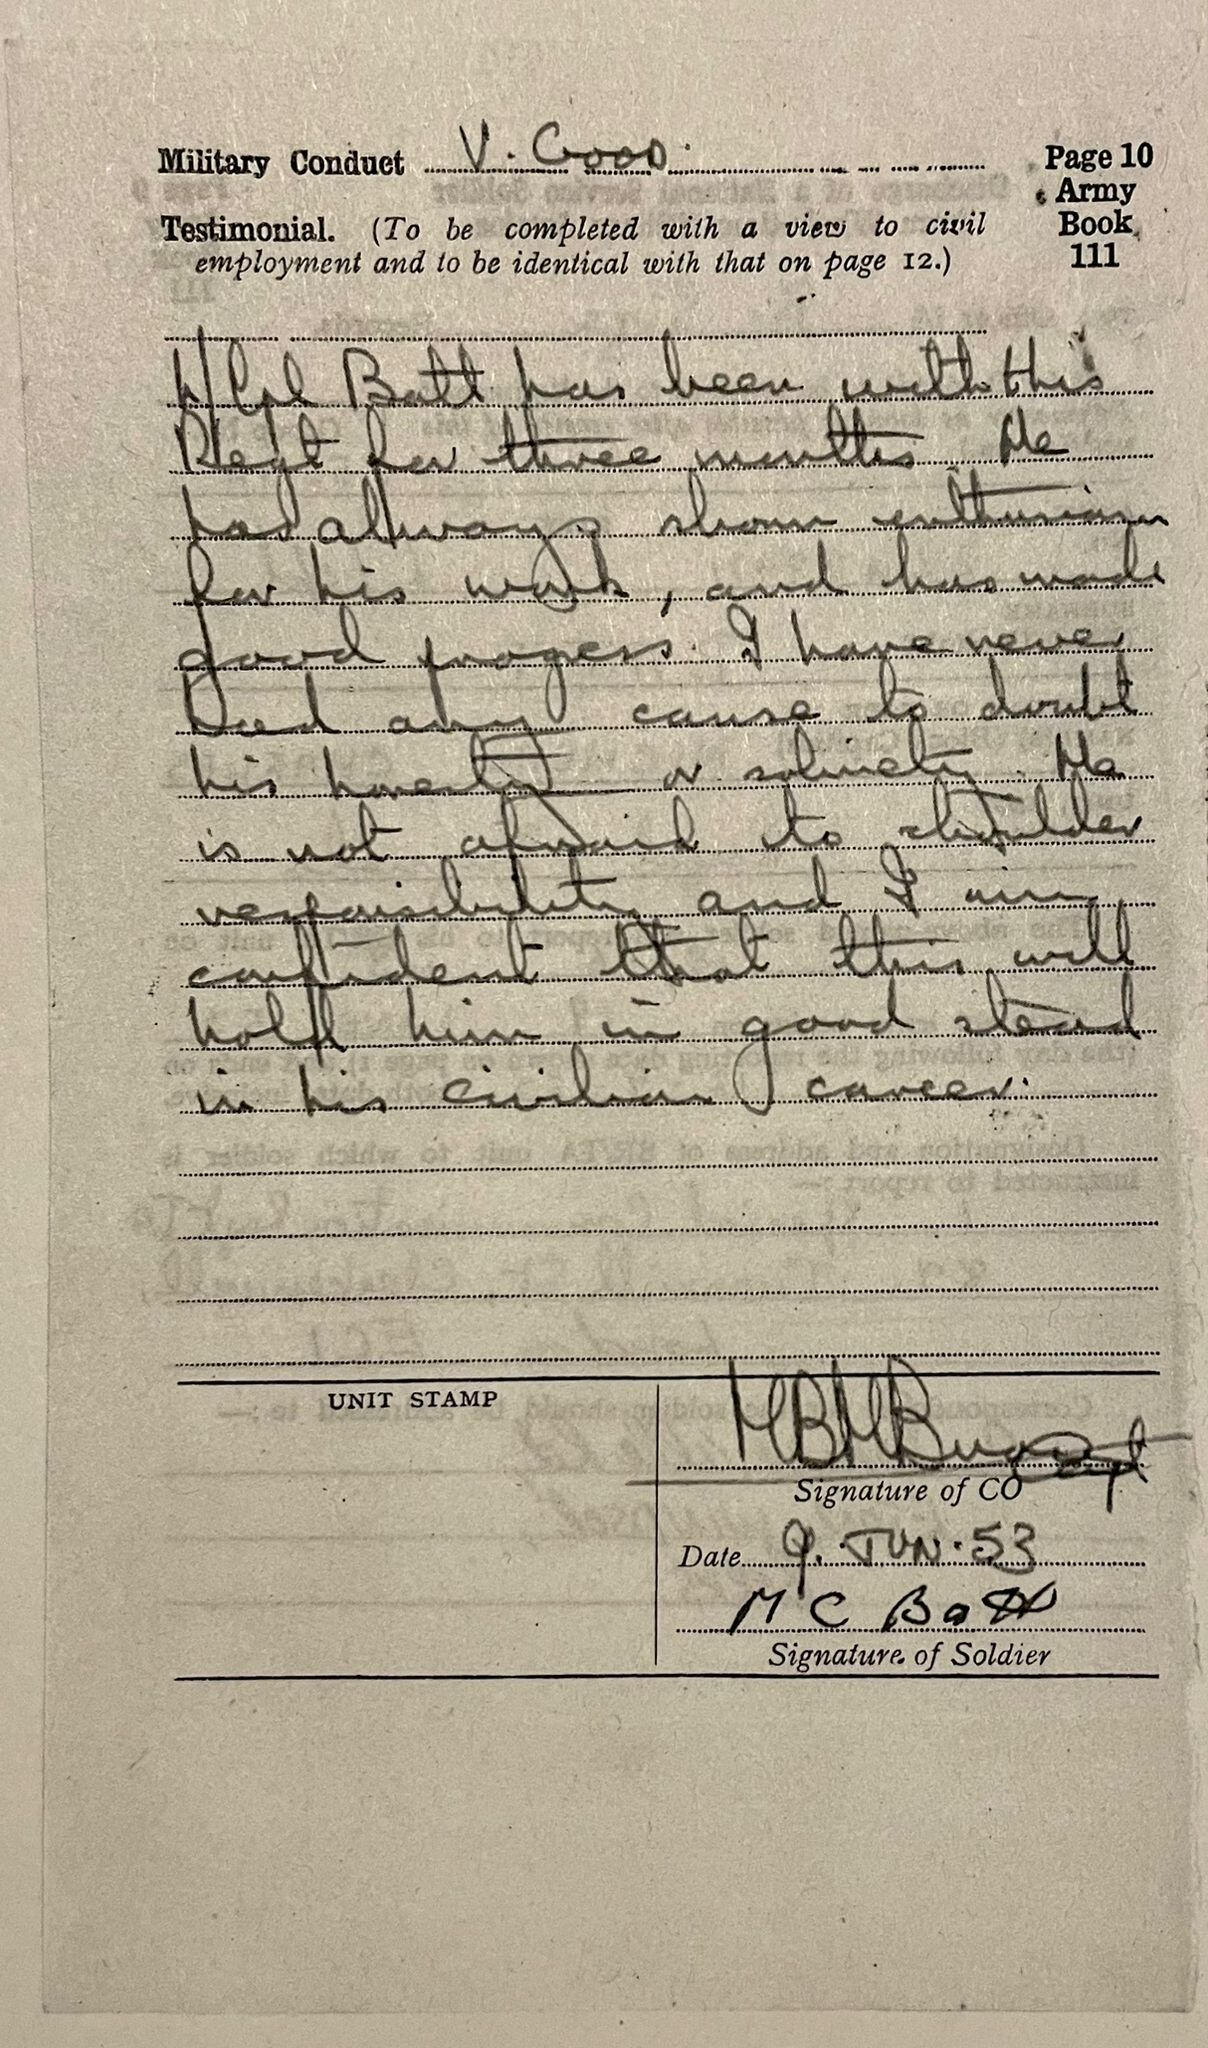 Military Conduct V. Good.
Page 10
Army
Book
111
Testimonial. (To be completed with a view to civil
employment and to be identical with that on page 12.)
Batt has been with this
Regt for three months. He
has always shown enthusiasm
for his work, and has made
good progress. I have never
had any cause to doubt
his honesty or sobriety. He
is not afraid to shoulder
responsibility and I am
confident that this will
hold him in good stead
in his civilian career.
UNIT STAMP
Capt
Signature of CO
Date 9. JUN. 53
M C Batt
Signature of Soldier